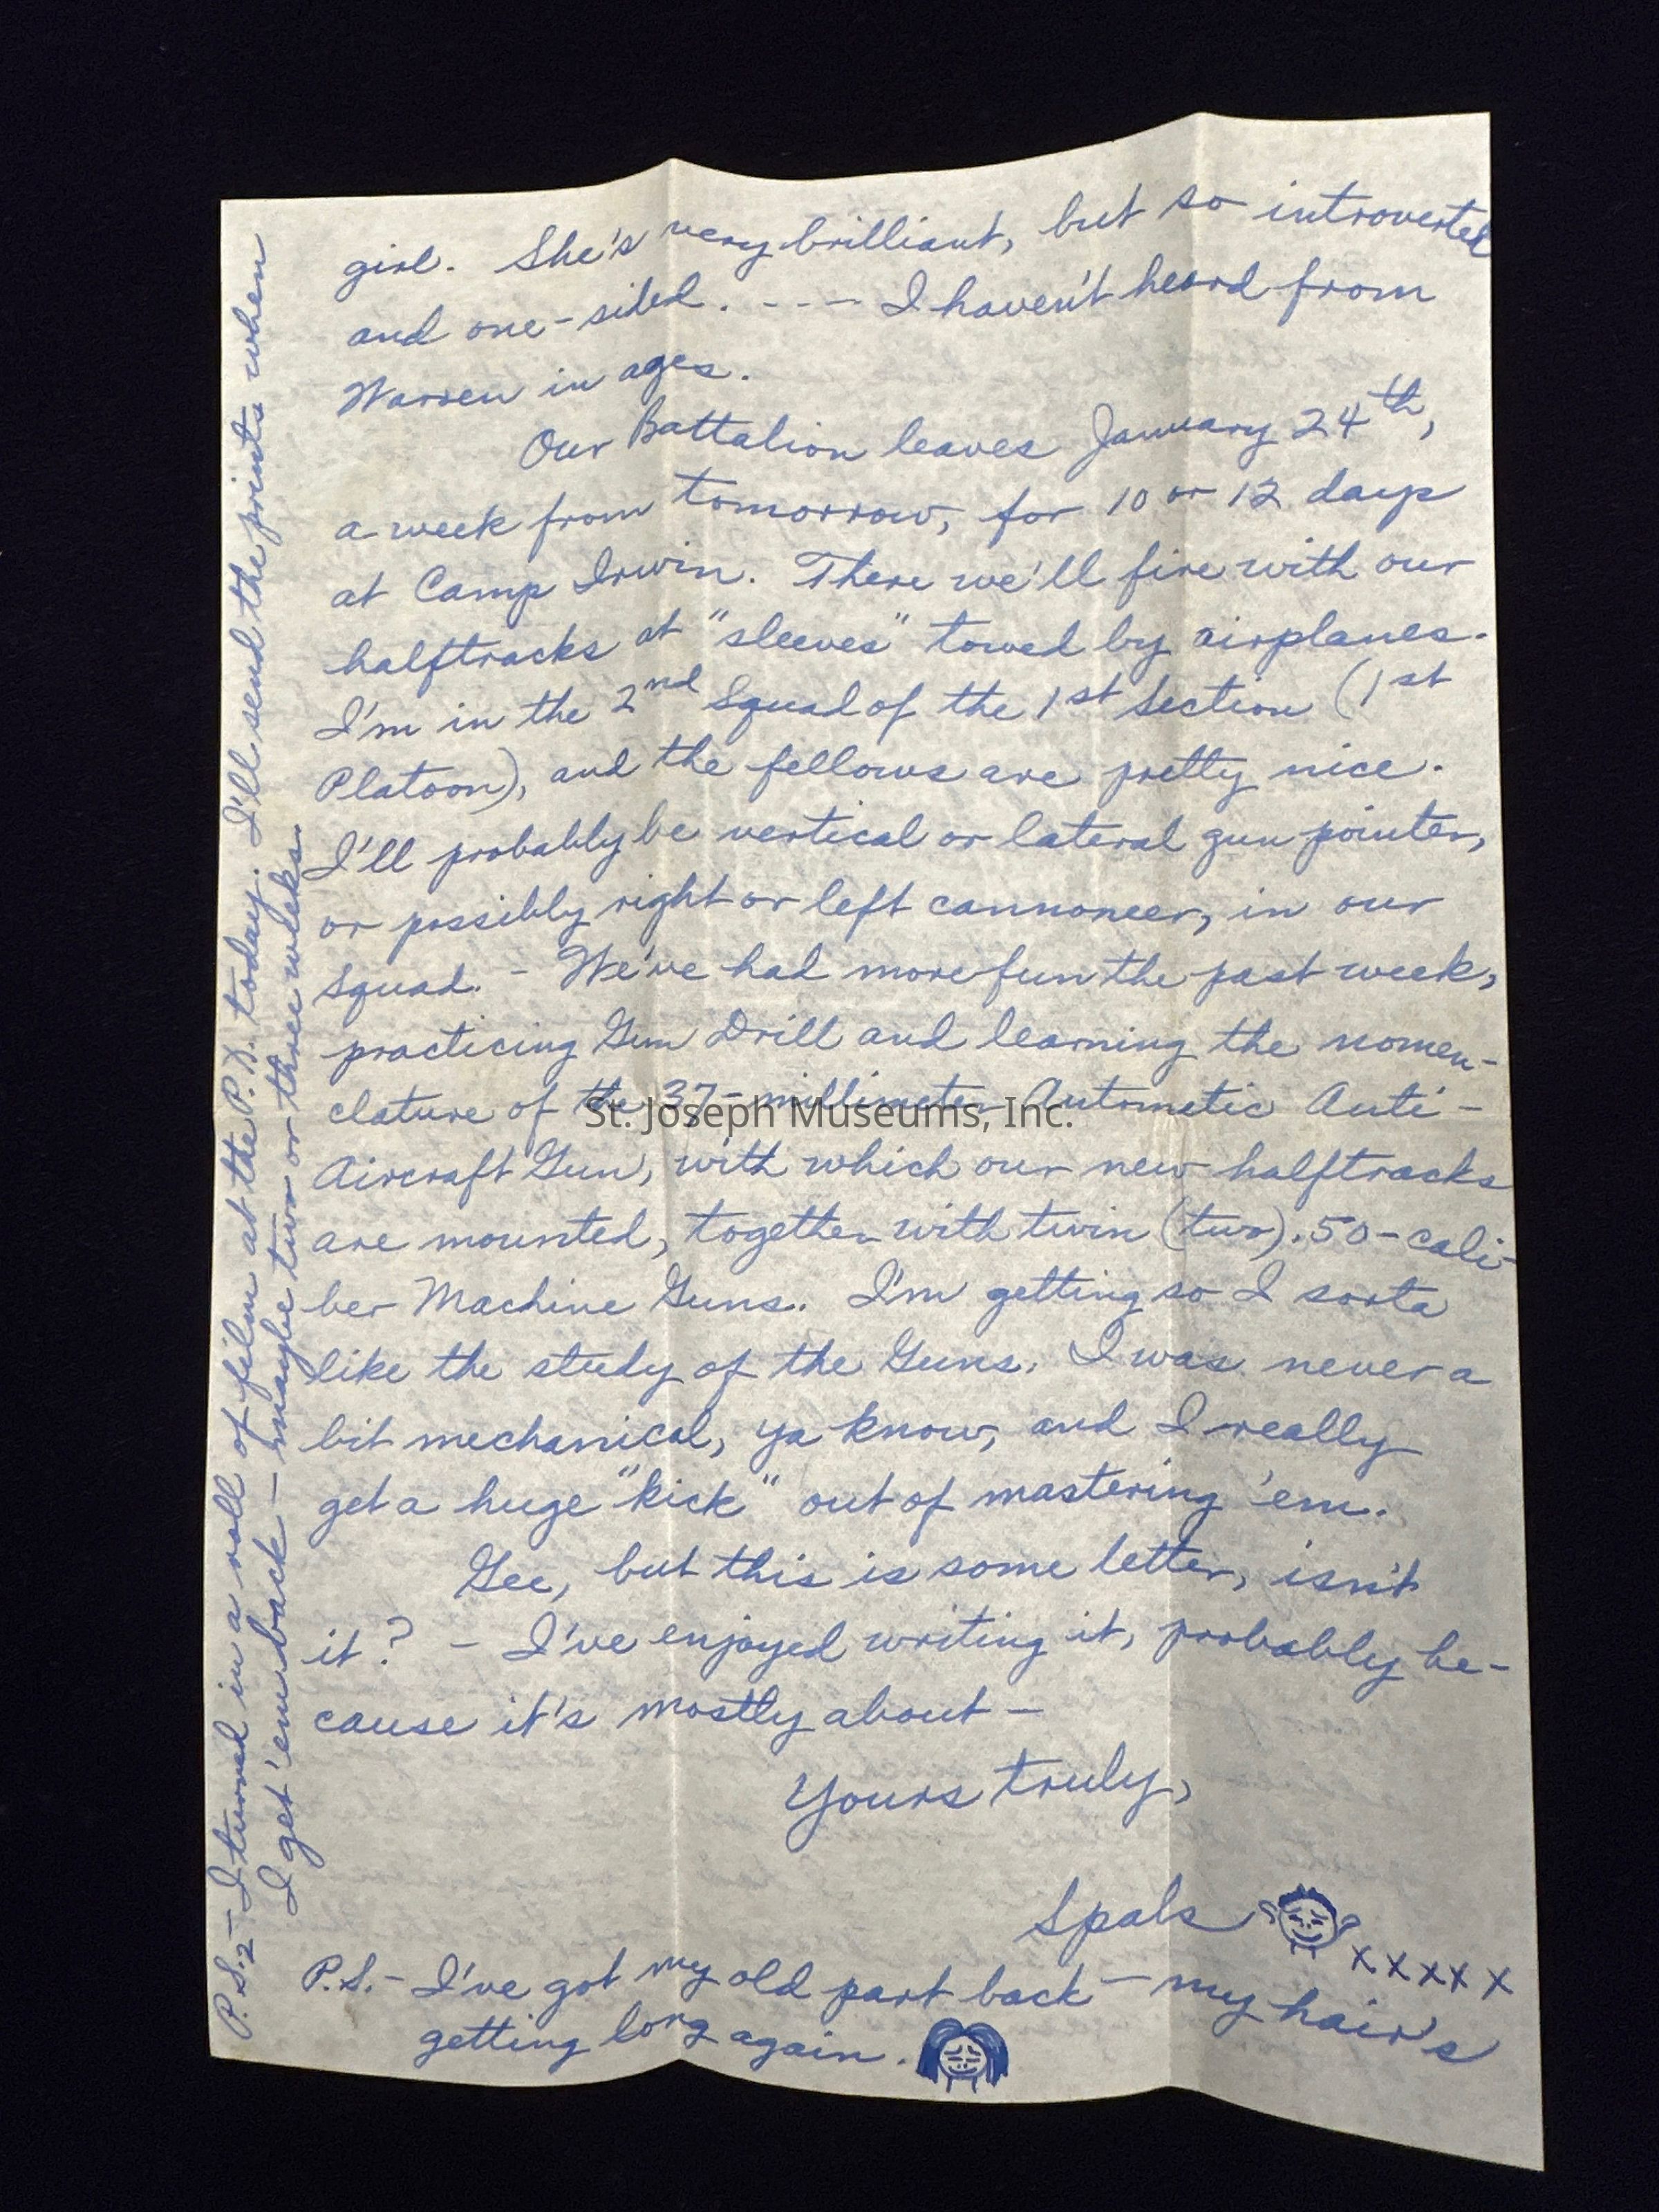 girl. She's very brilliant, but so introverted
and one-sided. --- I haven't heard from
Warren in ages.
Our Battalion leaves January 24th,
a week from tomorrow, for 10 or 12 days
at Camp Irwin. There we'll fire with our
halftracks at "sleeves" towed by airplanes.
I'm in the 2nd Squad of the 1st Section (1st
Platoon), and the fellows are pretty nice.
I'll probably be vertical or lateral gun pointer,
or possibly right or left cannoneer, in our
squad. - We've had more fun the past week,
practicing Gun Drill and learning the nomen-
clature of the 37-millimeter Automatic Anti-
Aircraft Gun, with which our new halftracks
are mounted, together with twin (two) .50-cali-
ber Machine Guns. I'm getting so I sorta
like the study of the Guns. I was never a
bit mechanical, ya know, and I really
get a huge "kick" out of mastering 'em.
Gee, but this is some letter, isn't
it? - I've enjoyed writing it, probably be-
cause it's mostly about -
Yours truly,
Spals
xxxxx
P.S. - I've got my old part back - my hair's
getting long again.
P.S.2 - I turned in a roll of film at the P.X. today. I'll send the prints when
I get 'em back - maybe two or three weeks.
St. Joseph Museums, Inc.